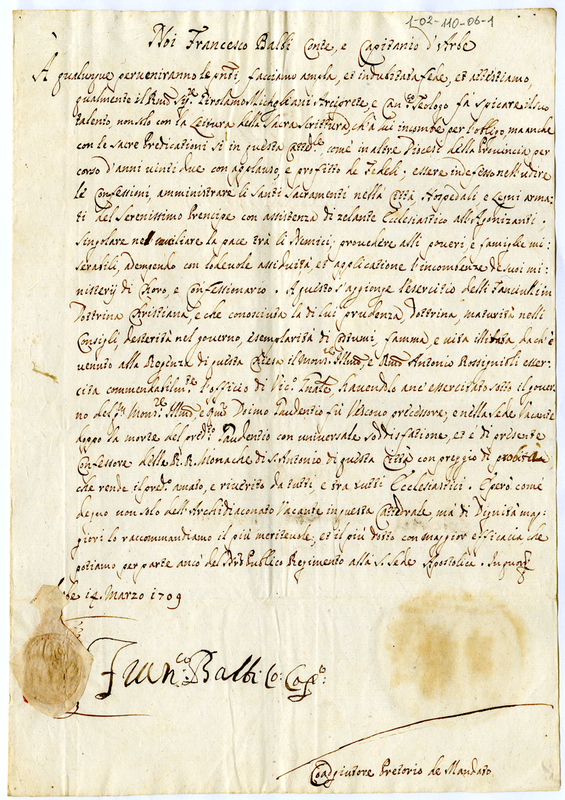 1-02-110-06-1
Noi Francesco Balbi Conte, e Capitanio d'Arbe
A qualunque perveniranno le pnti, facciamo ampla, et indubitata fede, et attestiamo,
qualmente il Rnd Sigr Girolamo Arciprete, e Canco Teologo fà spicare il suo
talento, non solo con la Lettura della Sacra Scrittura, ch'à lui incombe per l'obligo, ma anche
con le Sacre Predicationi sì in questa Cattedle, come in altre Diocesi della Provincia per
corso d'anni vinti due con applauso, e profitto de Fedeli; essere indefesso nell'udire
le Confessioni, amministrare li Santi Sacramenti nella Città, Hospedali, e Legni arma=
ti del Serenissimo Prencipe con assistenza di zelante Ecclesiastico all'Agonizanti;
Singolare nel conciliare la pace trà li Nemici; provedere alli poveri e famiglie mi=
serabili, adempendo con lodevole assiduità, et applicatione l'incombenze de suoi mi=
nisterij di Choro, e Confessionario. A questo s'aggionge l'esercitio delli Fanciulli in
Dottrina Christiana, e che conosciuta la di lui prudenza, dottrina, maturità nelli
Consigli, desterità nel governo, esemplarità di costumi, fama, e vita illibata, da ch'è
venuto alla Regenza di questa Chiesa il Monsr Illmo, e Rmo Antonio Rossignoli esser=
cita commendabilmte l'officio di Vico Gnale, havendo anco essercitato sotto il gover=
no del qm Monsr Illmo e Rmo Doimo Gaudentio fù Vescovo precessore; e nella Sede Vacante
doppo la morte del predto Gaudentio con universale soddisfatione, et è di presente
Confessore delle R.R. Monache di S. Antonio di questa Città con preggio di probità,
che rende il predo amato, e riverito da tutti, e trà tutti Ecclesiastici. E però come
degno non solo dell'Archidiaconato Vacante in questa Cattedrale, mà di Dignità mag=
giori lo raccommandiamo il più meritevole, et il più dotto con maggior efficacia che
potiamo per parte anco del Publico Regimento alla S. Sede Apostolica. In quor
Arbe 14 Marzo 1709
Franco Balbi Co: Capo
Coadgiutore Pretorio de Mandato